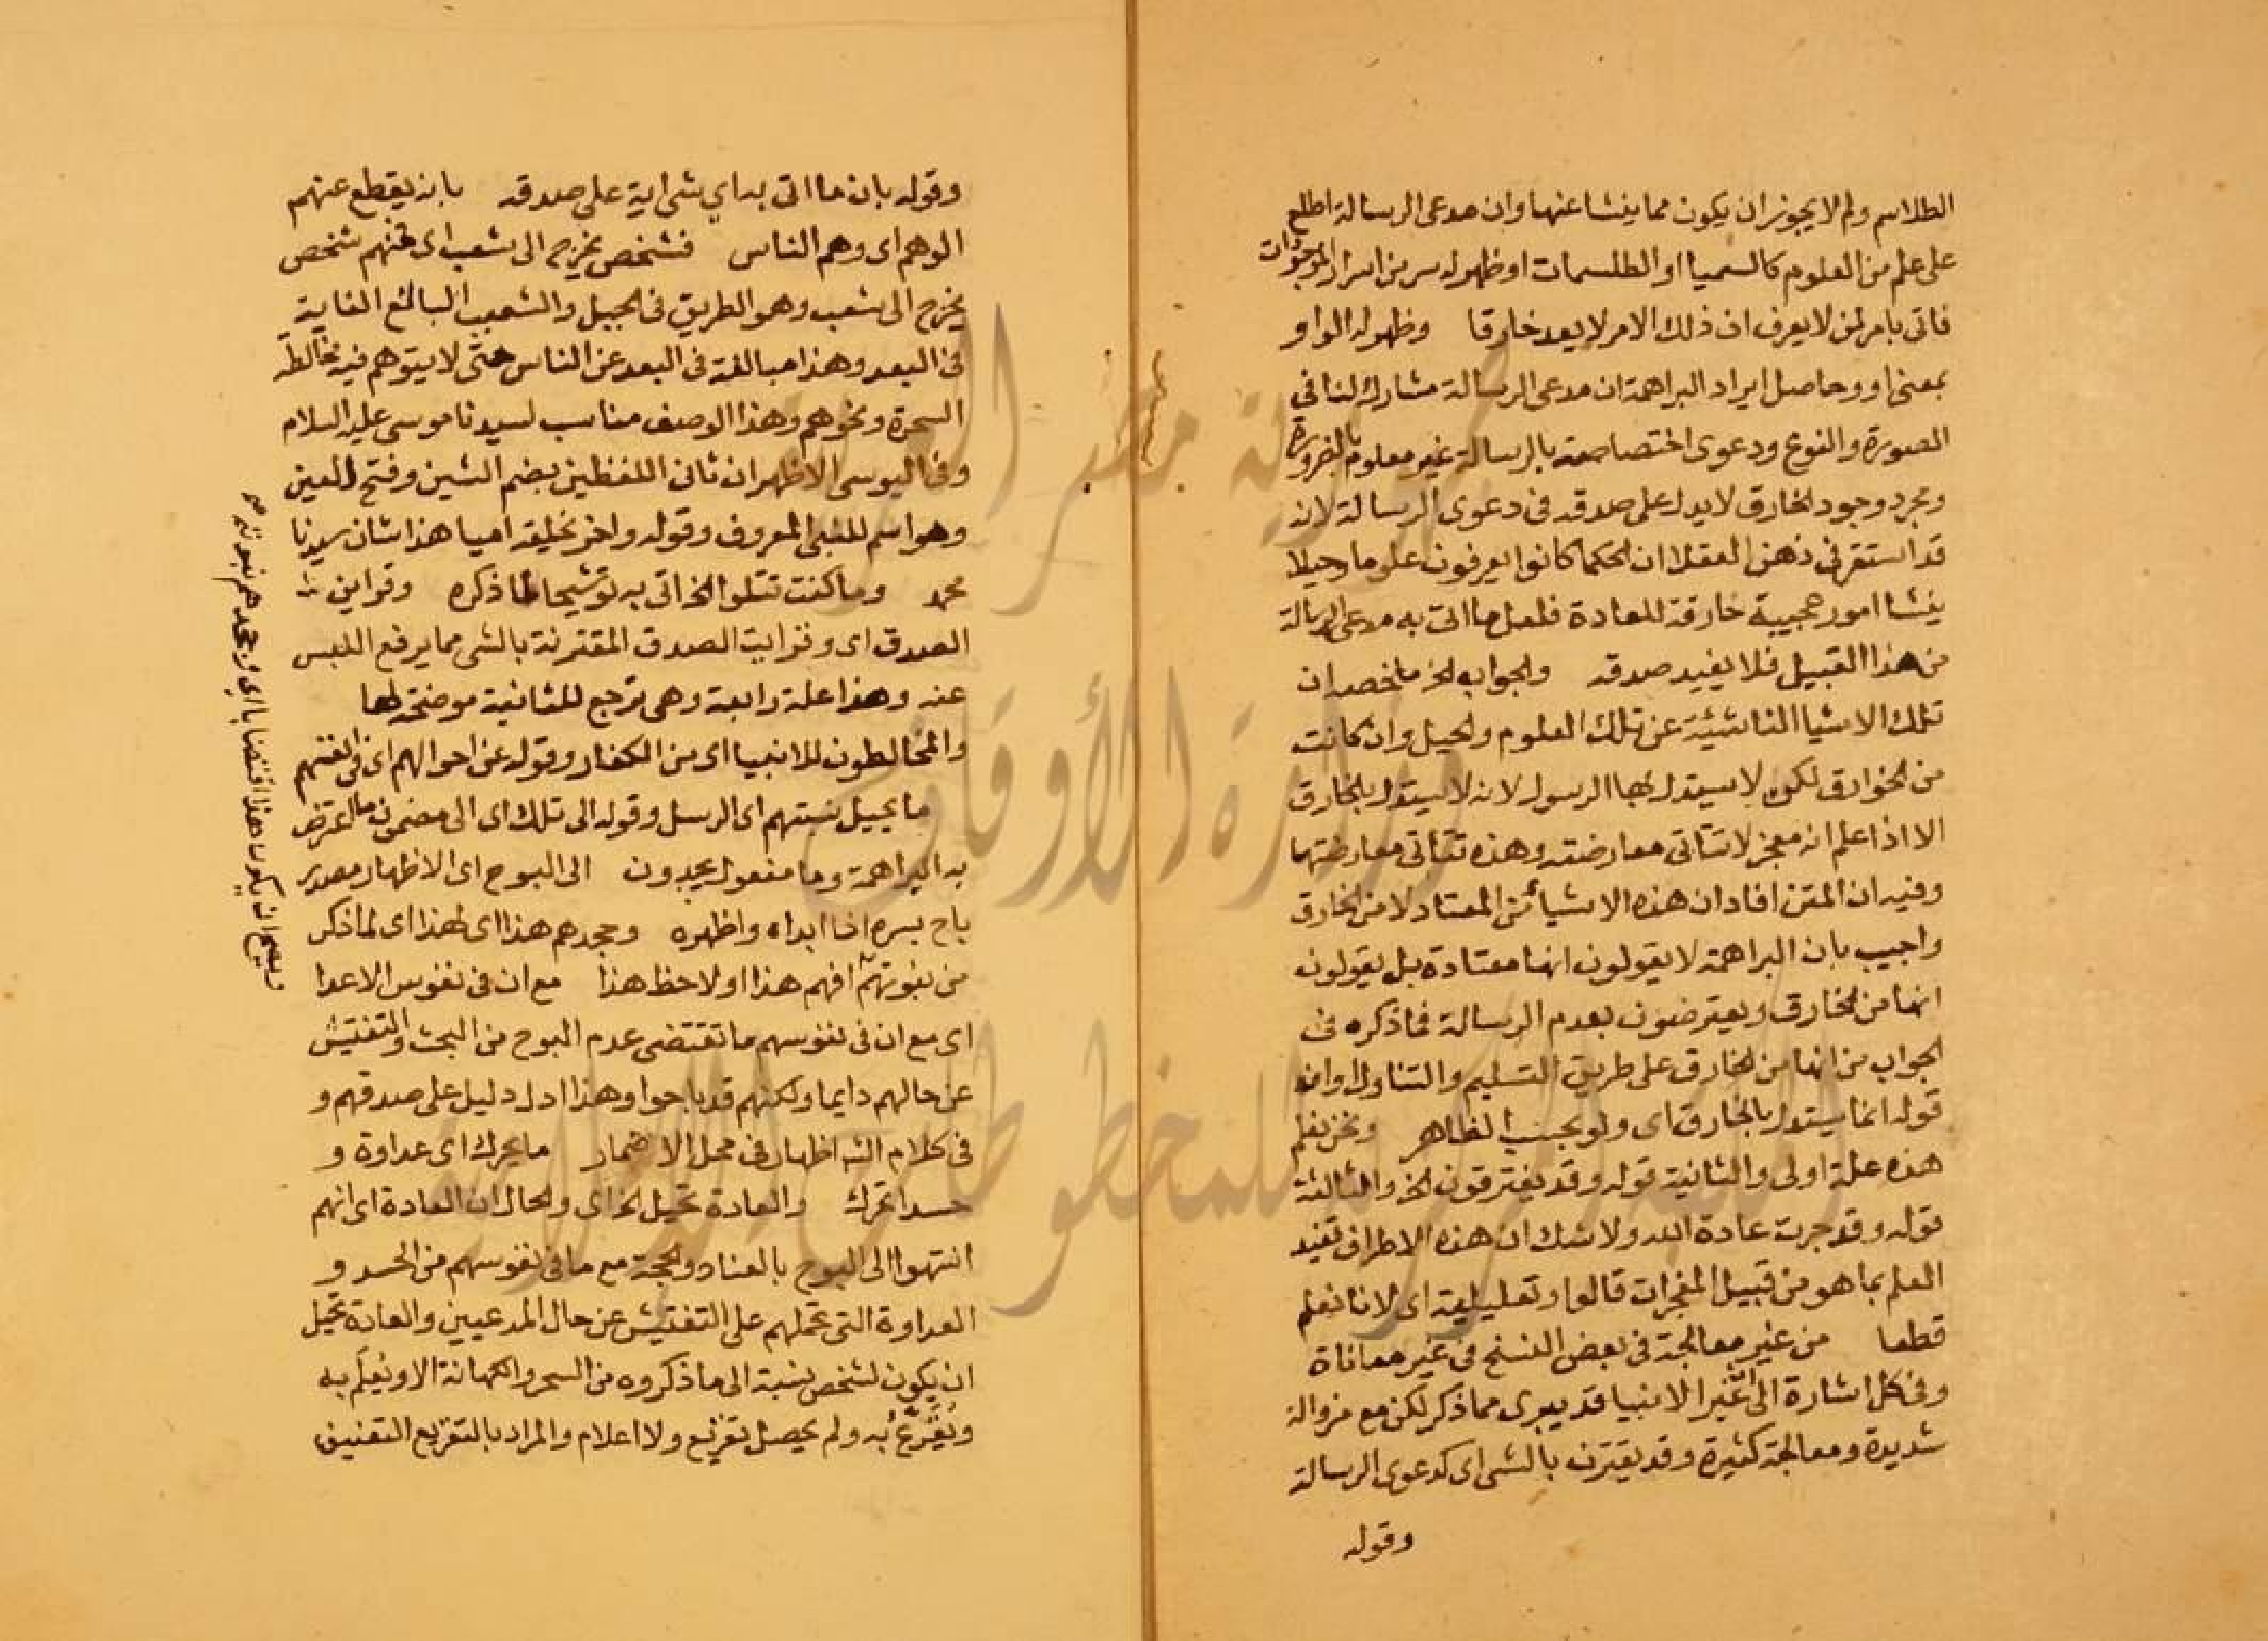 الطلاسم ولم لا يجوز ان يكون مما ينشا عنها وان مدعى الرسالة اطلع
على علم من العلوم كالسميا او الطلسمات او ظهر له سر من اسرار الموجودات
فاتى بامر لمن لا يعرف ان ذلك الامر لا يعد خارقا وظهر له الواو
بمعنى او وحاصل ايراد البراهمة ان مدعى الرسالة مشارك لنا فى
الصورة والنوع ودعوى اختصاصه بالرسالة غير معلوم بالضرورة
ومجرد وجود الخارق لا يدل على صدقه فى دعوى الرسالة لانه
قد استقر فى ذهن العقلا ان الحكما كانوا يعرفون علوما وحيلا
ينشا امور عجيبة خارقة للعادة فلعل ما اتى به مدعى الرسالة
من هذا القبيل فلا يفيد صدقه والجواب الخ ملخصه ان
تلك الاشيا الناشئية عن تلك العلوم والحيل وان كانت
من الخوارق لكن لا يستدل بها الرسول لانه لا يستدل بالخارق
الا اذا علم انه معجز لا تتاتى معارضته وهذه تتاتى معارضتها
وفيه ان المتن افاد ان هذه الاشيا من المعتاد لا من الخارق
واجيب بان البراهمة لا يقولون انها معتادة بل يقولون
انها من الخارق ويعترضون بعدم الرسالة فما ذكره فى
الجواب من انها من الخارق على طريق التسليم والتناول او ان
قوله انما يستدل بالخارق اى ولو بحسب الظاهر ونحن نعلم
هذه علة اولى والثانية قوله وقد يفترقون الخ والثالثة
قوله وقد جرت عادة الله ولا شك ان هذه الاطراف تفيد
العلم بما هو من قبيل المعجزات قالوا وتعليلية اى لانا نعلم
قطعا من غير معالجة فى بعض النسخ من غير معاناة
وفى كل اشارة الى ان غير الانبيا قد يبرى مما ذكر لكن مع مزوالة
شديدة ومعالجة كثيرة وقد يقترن بالشى اى كدعوى الرسالة
وقوله
وقوله بان ما اتى به اي شى اية على صدقه بان يقطع عنهم
الوهم اى وهم الناس فشخص يخرج الى شعب اى فمنهم شخص
يخرج الى شعب وهو الطريق فى الجبل والشعيب البالغ الغاية
فى البعد وهذا مبالغة فى البعد عن الناس حتى لا يتوهم فيه مخالطة
السحرة ونحوهم وهذا الوصف مناسب لسيدنا موسى عليه السلام
وفى اليوسى الاظهر ان ثانى اللفظين بضم الشين وفتح العين
وهو اسم للنبى المعروف وقوله واخر خليقه اميا هذا شان سيدنا
محمد وما كنت تتلوا الخ اتى به توشيحا لما ذكره وقراين
الصدق اى وقراين الصدق المقترنة بالشى مما يرفع اللبس
عنه وهذا علة رابعة وهى ترجع للثانية موضحة لها
والمخالطون للانبيا اى من الكفار وقوله عن احوالهم اى فى الفتهم
ما يحيل نسبتهم اى الرسل وقوله الى تلك اى الى مضمون ما اعترض
به البراهمة وما مفعول يجدون الى البوح اى الاظهار مصدر
باح بسره اذا ابداه واظهره وجحدهم هذا اى لهذا اى لما ذكر
من نبوتهم افهم هذا او لاحظ هذا مع ان فى نفوس الاعدا
اى مع ان فى نفوسهم ما تقتضى عدم البوح من البحث والتفتيش
عن حالهم دايما ولكنهم قد باحوا وهذا ادل دليل على صدقهم و
فى كلام الش اظهار فى محل الاضمار ما يحرك اى عداوة و
حسدا تحرك والعادة تحيل الخ اى والحال ان العادة اى انهم
انتهوا الى البوح بالعناد والحجة مع ما فى نفوسهم من الحسد و
العداوة التى تحملهم على التفتيش عن حال المدعيين والعادة تحيل
ان يكون لشخص نسبة الى ما ذكروه من السحر والكهانة الا ويُعلَم به
ويُقَرَّع به ولم يحصل تقريع ولا اعلام والمراد بالتقريع التعنيف